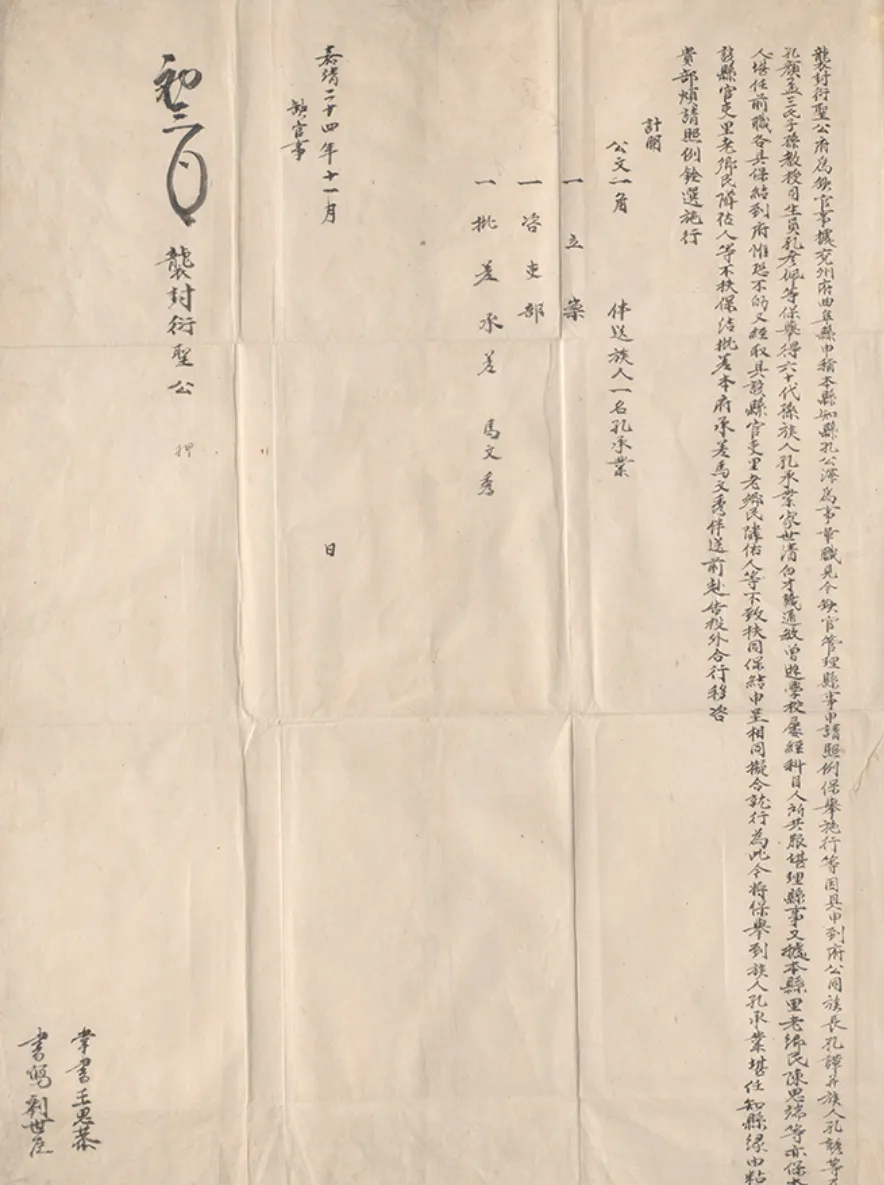 襲封衍聖公府為缺官事據兖州府曲阜縣申稱本縣知縣孔公澤為事革職見今缺官管理縣事申請照例保舉施行等因具申到府公同族長孔諱并族人孔諮等及
孔顏孟三氏子孫教授司生員孔彥佩等保舉得六十代孫族人孔承業家世清白才識通敏曾遊學校屢經科目人所共服堪理縣事又據本縣里老鄉民陳思端等亦保本
人堪任前職各具保結到府惟恐不的又經取具該縣官吏里老鄉民隣佑人等不致扶同保結申呈相同擬合就行為此今將保舉到族人孔承業堪任知縣緣由粘
該縣官吏里老鄉民隣佑人等不扶保結批差本府承差馬文秀伴送前赴告投外合行移咨
貴部煩請照例銓選施行
計開
公文一角 伴送族人一名孔承業
一立案
一咨吏部
一批差承差 馬文秀
嘉靖二十四年十一月 日
缺官事
初三日
襲封衍聖公 押
掌書王思恭
書寫劉世